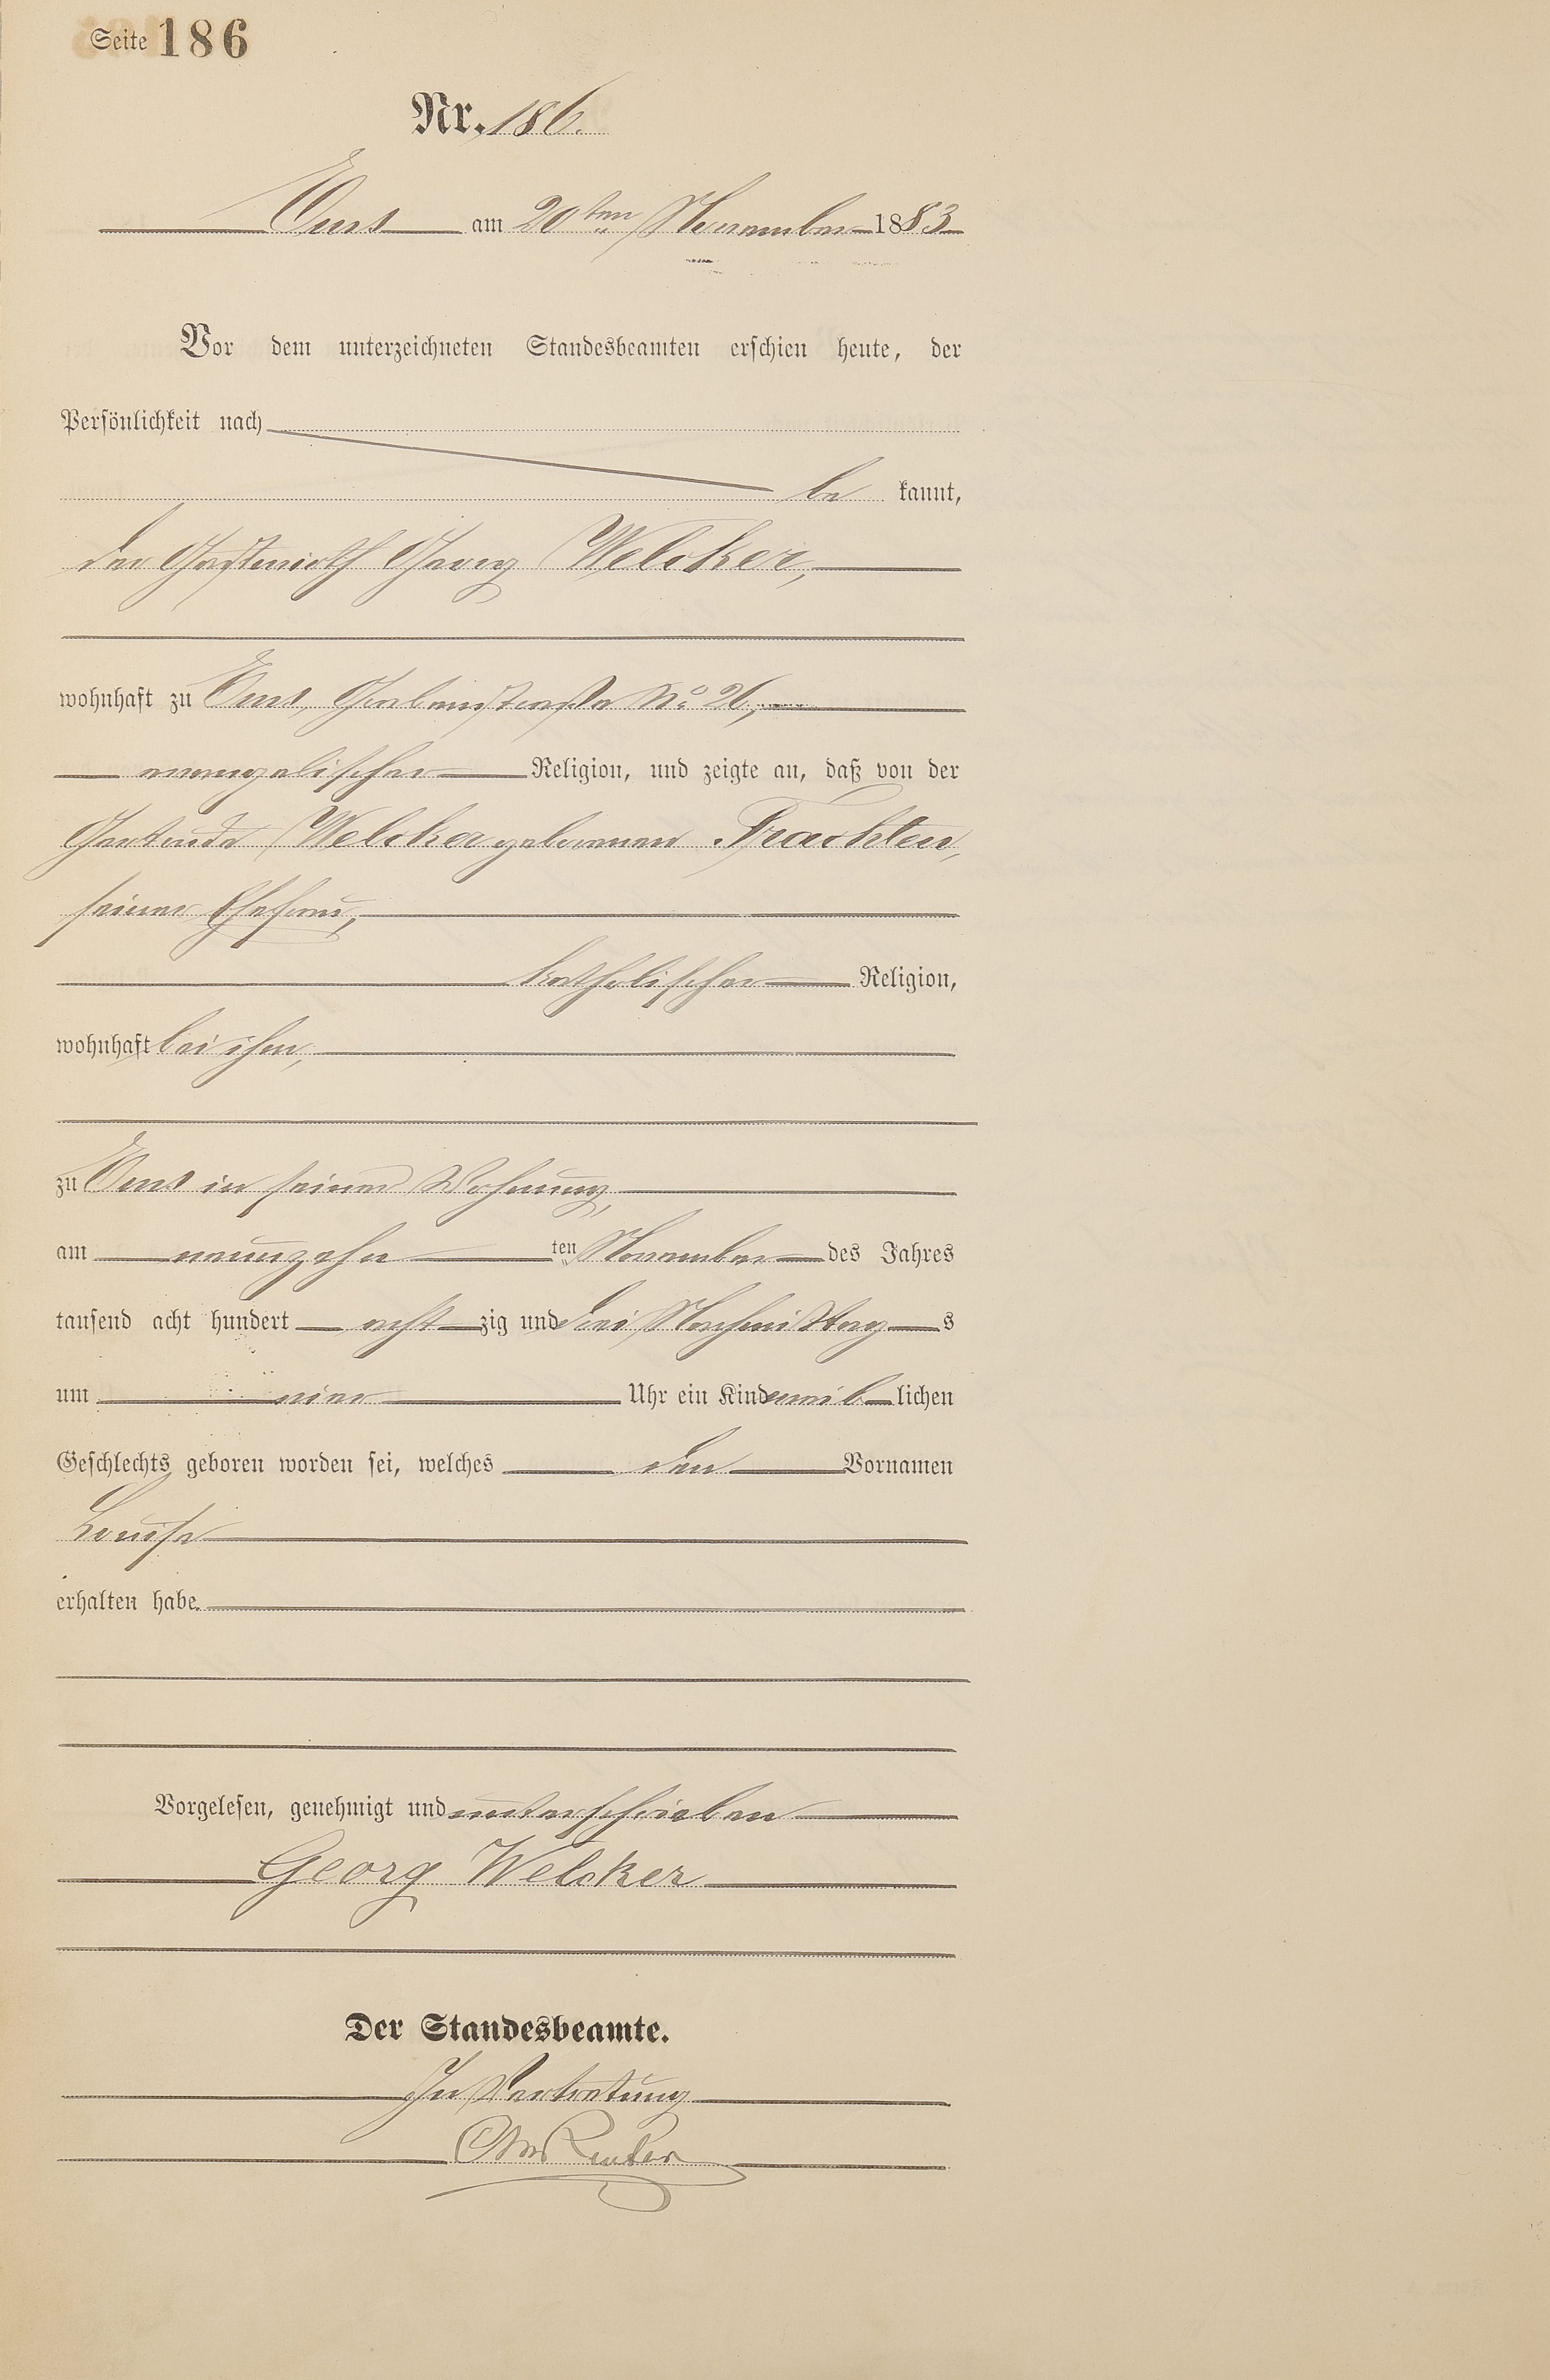 Seite 186
Nr. 186.
Ems am 20ten November 1883
Vor dem unterzeichneten Standesbeamten erschien heute, der
Persönlichkeit nach
be kannt,
der Gastwirth Georg Welcker,
wohnhaft zu Ems, Grabenstraße No 26,
evangelischer Religion, und zeigte an, daß von der
Gertrude Welcker geborenen Trachten,
seiner Ehefrau,
katholischer Religion,
wohnhaft bei ihm,
zu Ems in seiner Wohnung,
am neunzehn ten November des Jahres
tausend acht hundert acht zig und drei Nachmittag s
um vier Uhr ein Kind weib lichen
Geschlechts geboren worden sei, welches den Vornamen
Louise
erhalten habe.
Vorgelesen, genehmigt und unterschrieben
Georg Welcker
Der Standesbeamte.
In Vertretung
Reuter